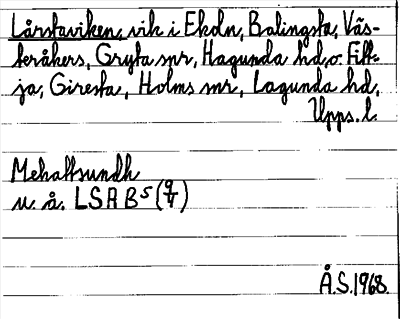 Lårstaviken, vik i Ekoln, Balingsta, Väs-
teråkers, Gryta snr, Hagunda hd, o. Fitt-
ja, Giresta, Holms snr, Lagunda hd,
Upps. l.
Mehaltsundh
u. å. LSA B5 (9/V)
Å.S. 1968.